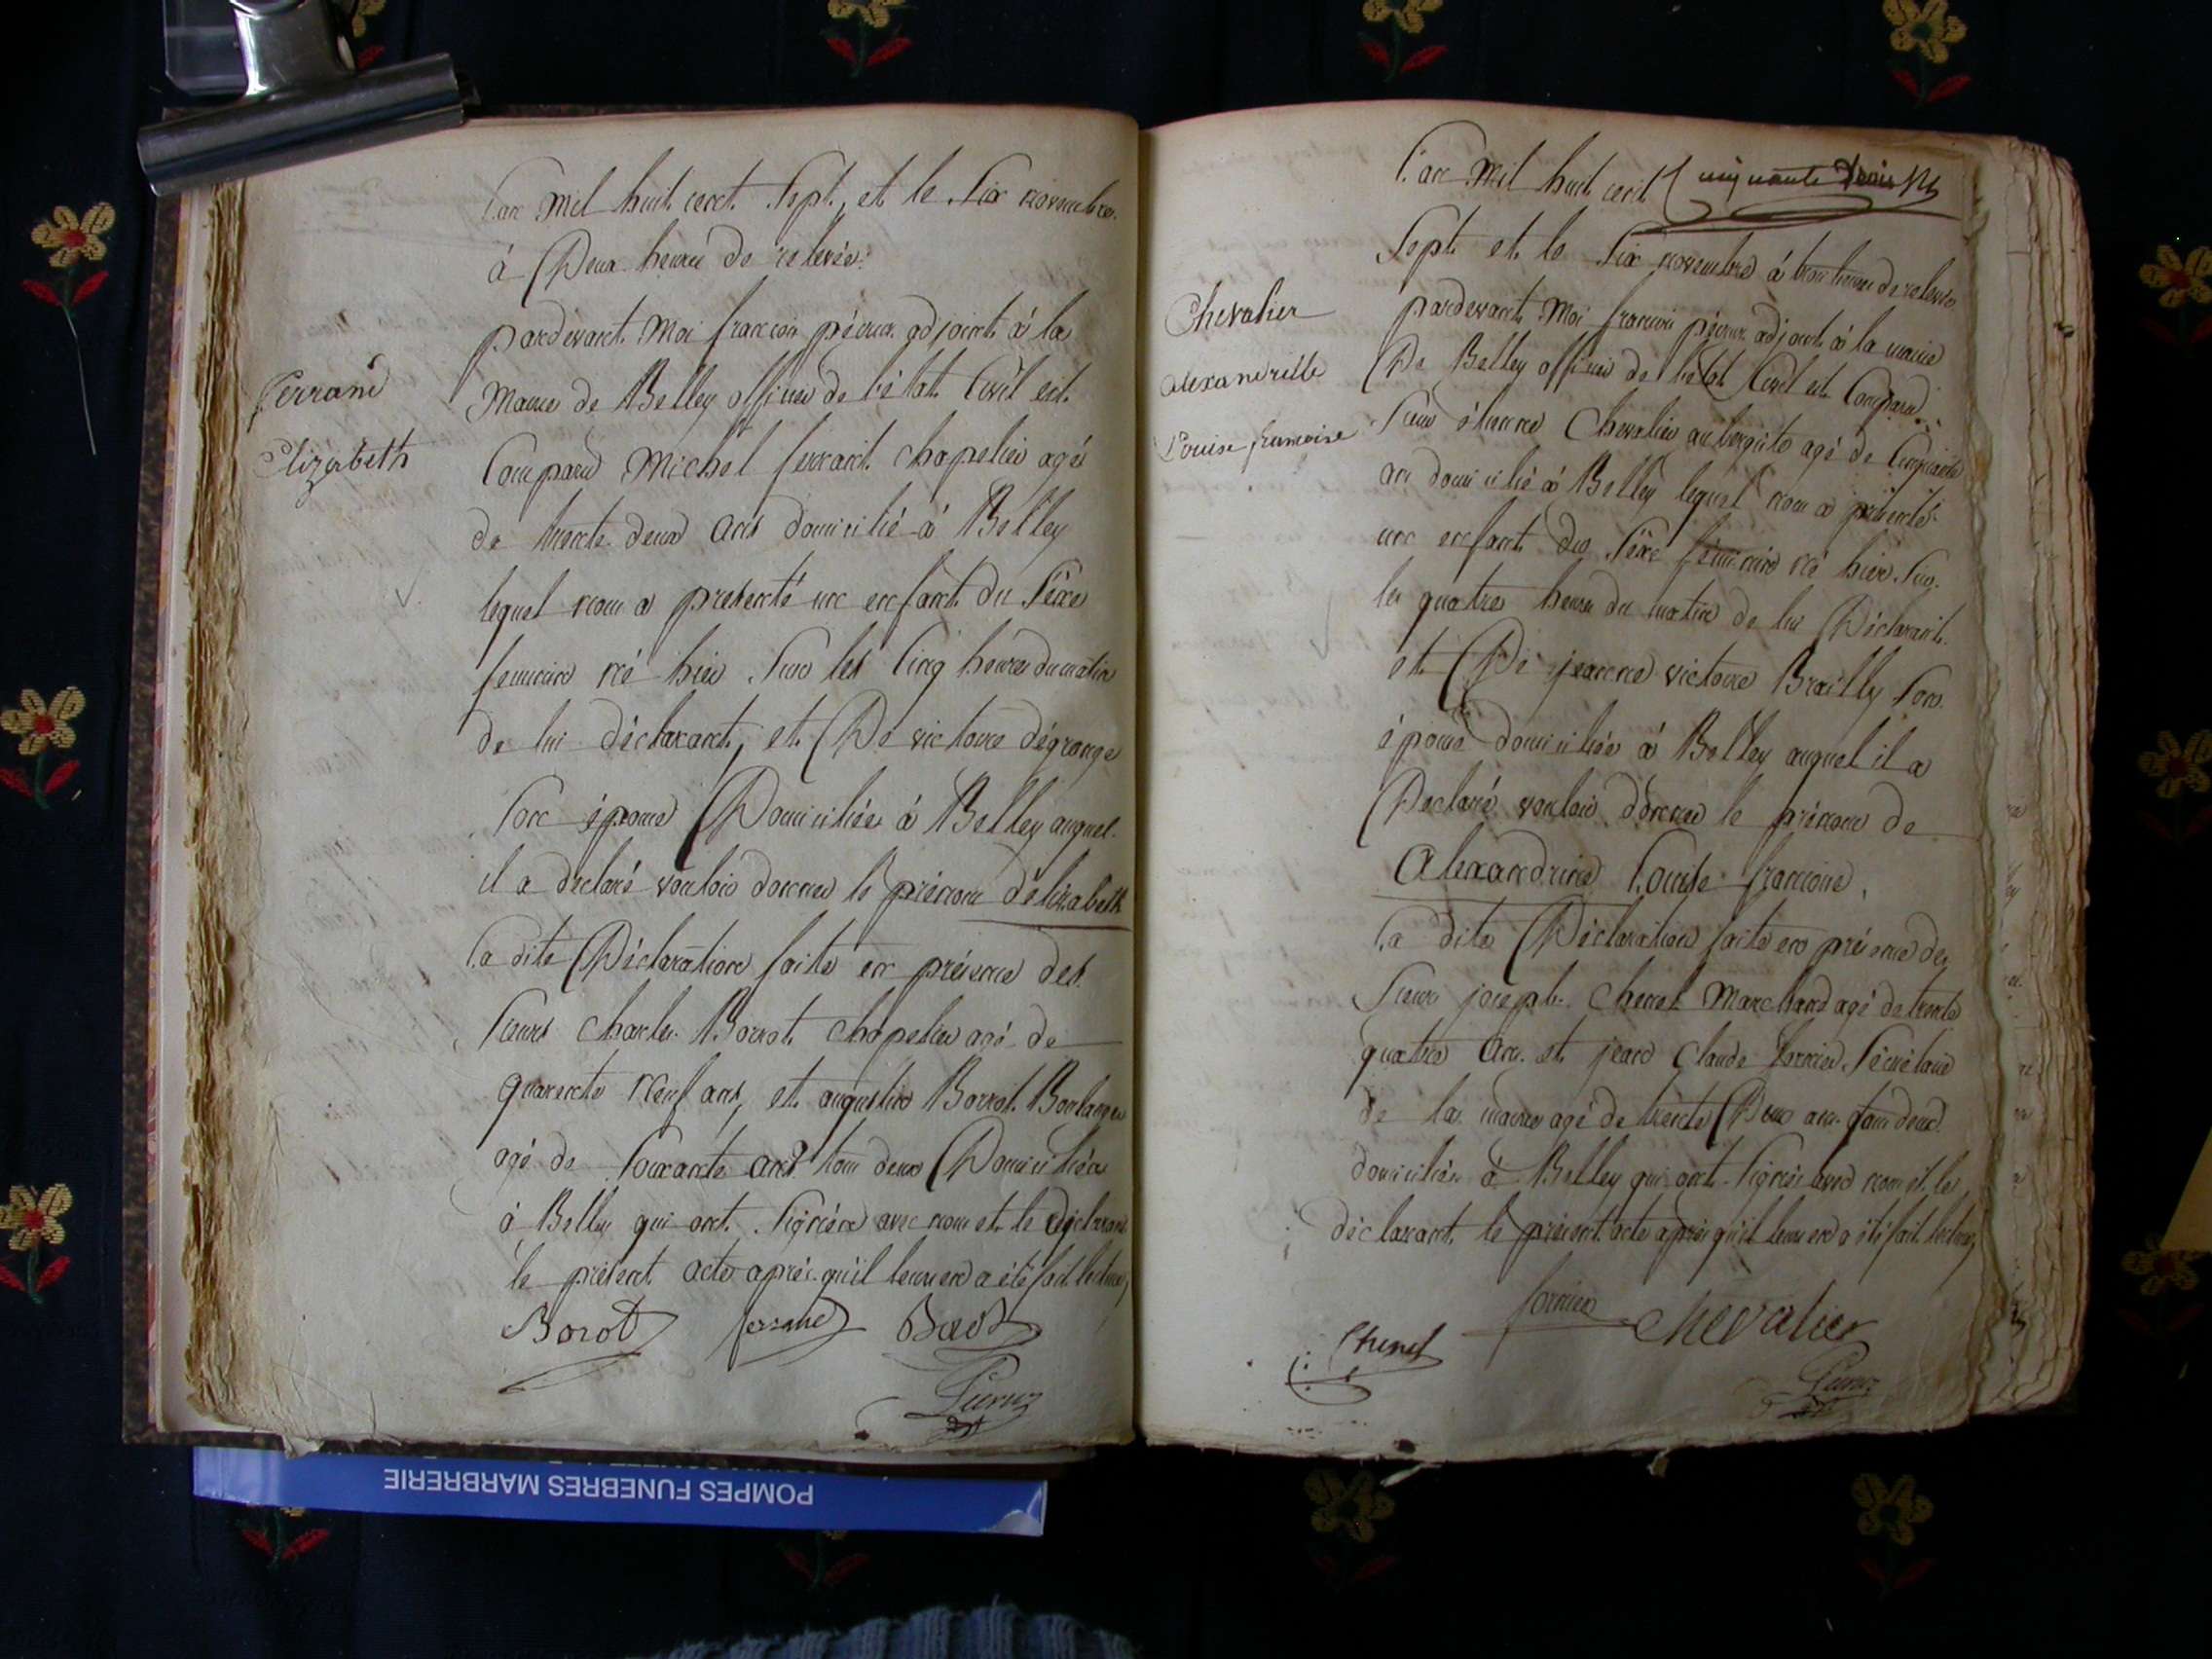 L'an mil huit cent sept, et le six novembre
à Deux heures de relevée
pardevant moi françois péruz adjoint à la
Ferrand
mairie de Belley officier de l'état civil est
Elizabeth
Comparu Michel ferrant chapelier agé
de trente deux ans domicilié à Belley
lequel nous a presenté un enfant du Séxe
feminin né hier sur les cinq heures du matin
de lui déclarant, et De victoire dégrange
son épouse Domiciliée à Belley auquel
il a déclaré vouloir donner le prénom d'élizabeth
La dite Déclaration faite en présence des
sieurs Charles Borrot chapelier agé de
quarente neuf ans, et augustin Borrot Boulanger
agé de soixante ans tous deux Domiciliés
à Belley qui ont signées avec nous et le déclarant
le présent acte après qu'il leur en a été fait lecture,
Borot ferrand Borot
L'an mil huit cent cinquante trois
sept et le six novembre à trois heures de relevée
Chevalier
pardevant moi françois péruz adjoint à la mairie
alexandrille
De Belley officier de l'état civil est Comparu
Louise francoise
Sieur étienne Chevalier aubergiste agé de cinquante
ans domicilié à Belley lequel nous a présenté
un enfant du Séxe féminin né hier sur
les quatres heures du matin de lui Déclarant
et De jeanne victoire Brailly son
épouse domiciliée à Belley auquel il a
Déclaré vouloir donner le prénom de
Alexandrine Louise françoise
La dite Déclaration faite en présence des
Sieurs joseph Chenel Marchand agé de trente
quatre ans et jean Claude fornier Sécrétaire
de la mairie agé de trente Deux ans tous deux
domiciliés à Belley qui ont signées avec nous et le
déclarant le présent acte après qu'il leur en a été fait lecture,
fornier Chevalier
Chenel
POMPES FUNEBRES MARBRERIE